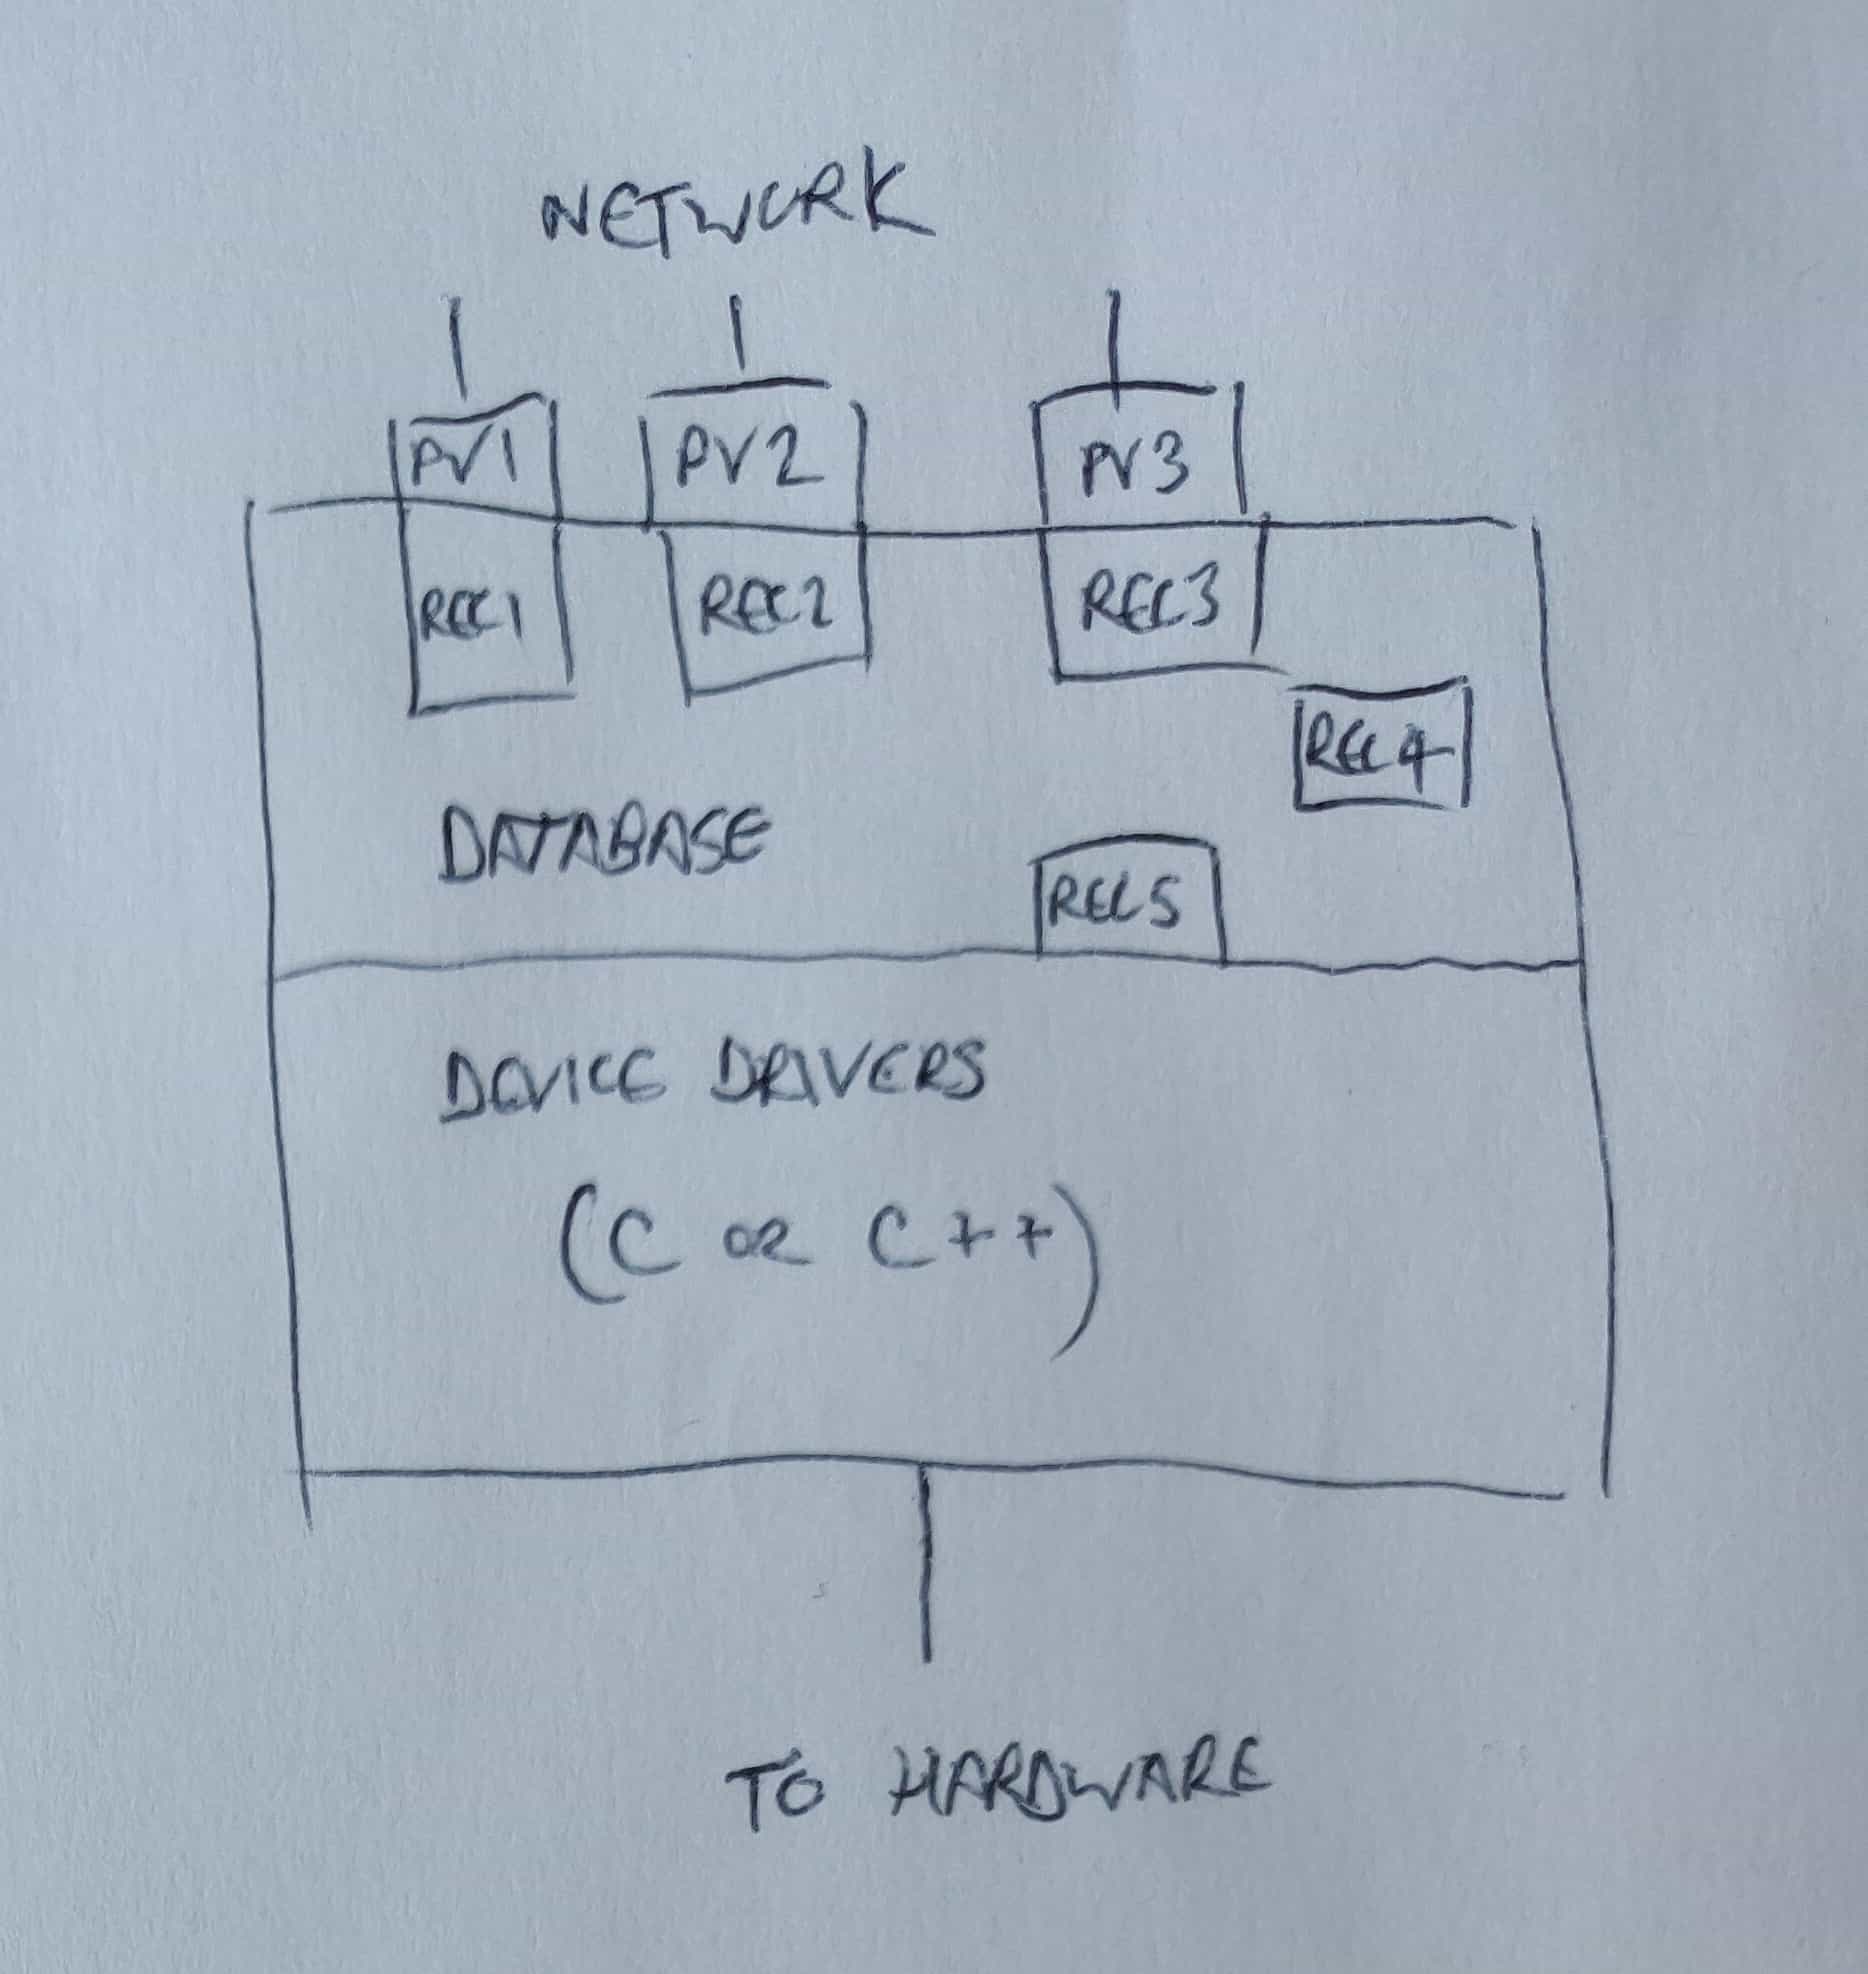 NETWORK
PV1 PV2 PV3
REC1 REC2 REC3
REC4
DATABASE
REC5
DEVICE DRIVERS
(C OR C++)
TO HARDWARE